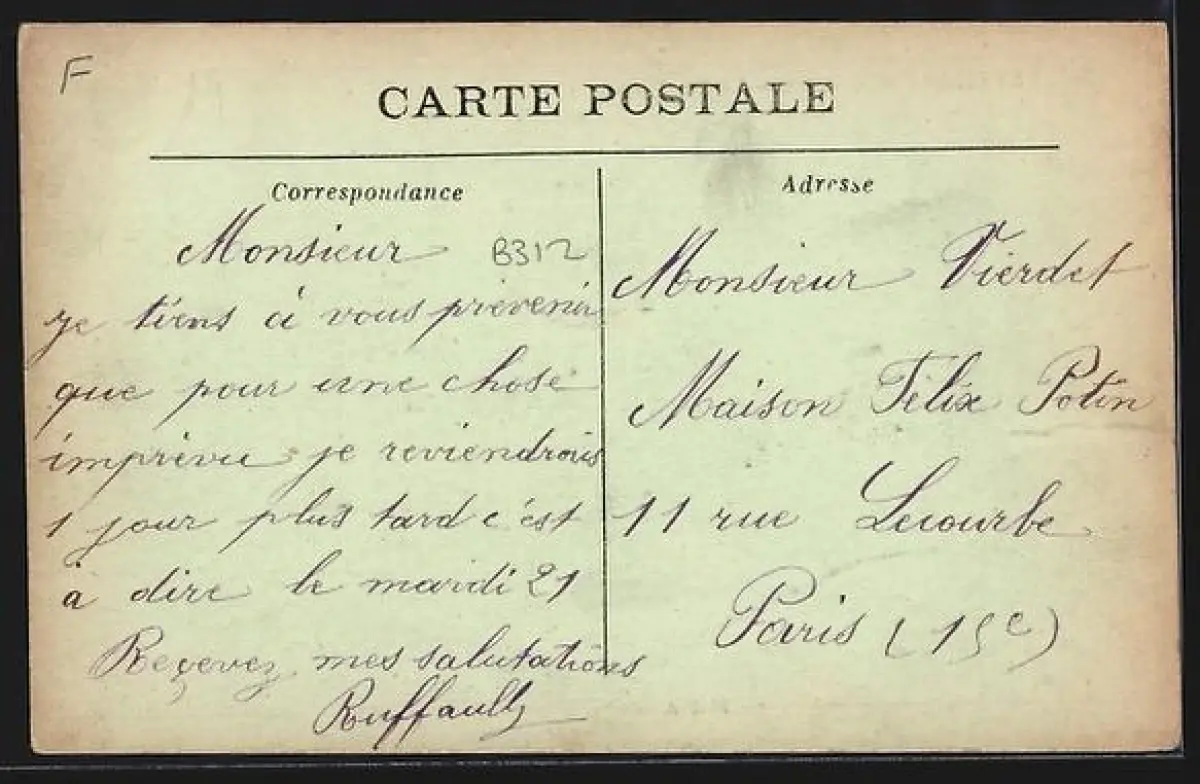 F
CARTE POSTALE
Correspondance
Monsieur B312
je tiens à vous prevenir
que pour une chose
imprévu je reviendrais
1 jour plus tard c'est
à dire le mardi 21
Reçevez mes salutations
Ruffault
Adresse
Monsieur Vierdet
Maison Félix Potin
11 rue Lecourbe
Paris (15e)